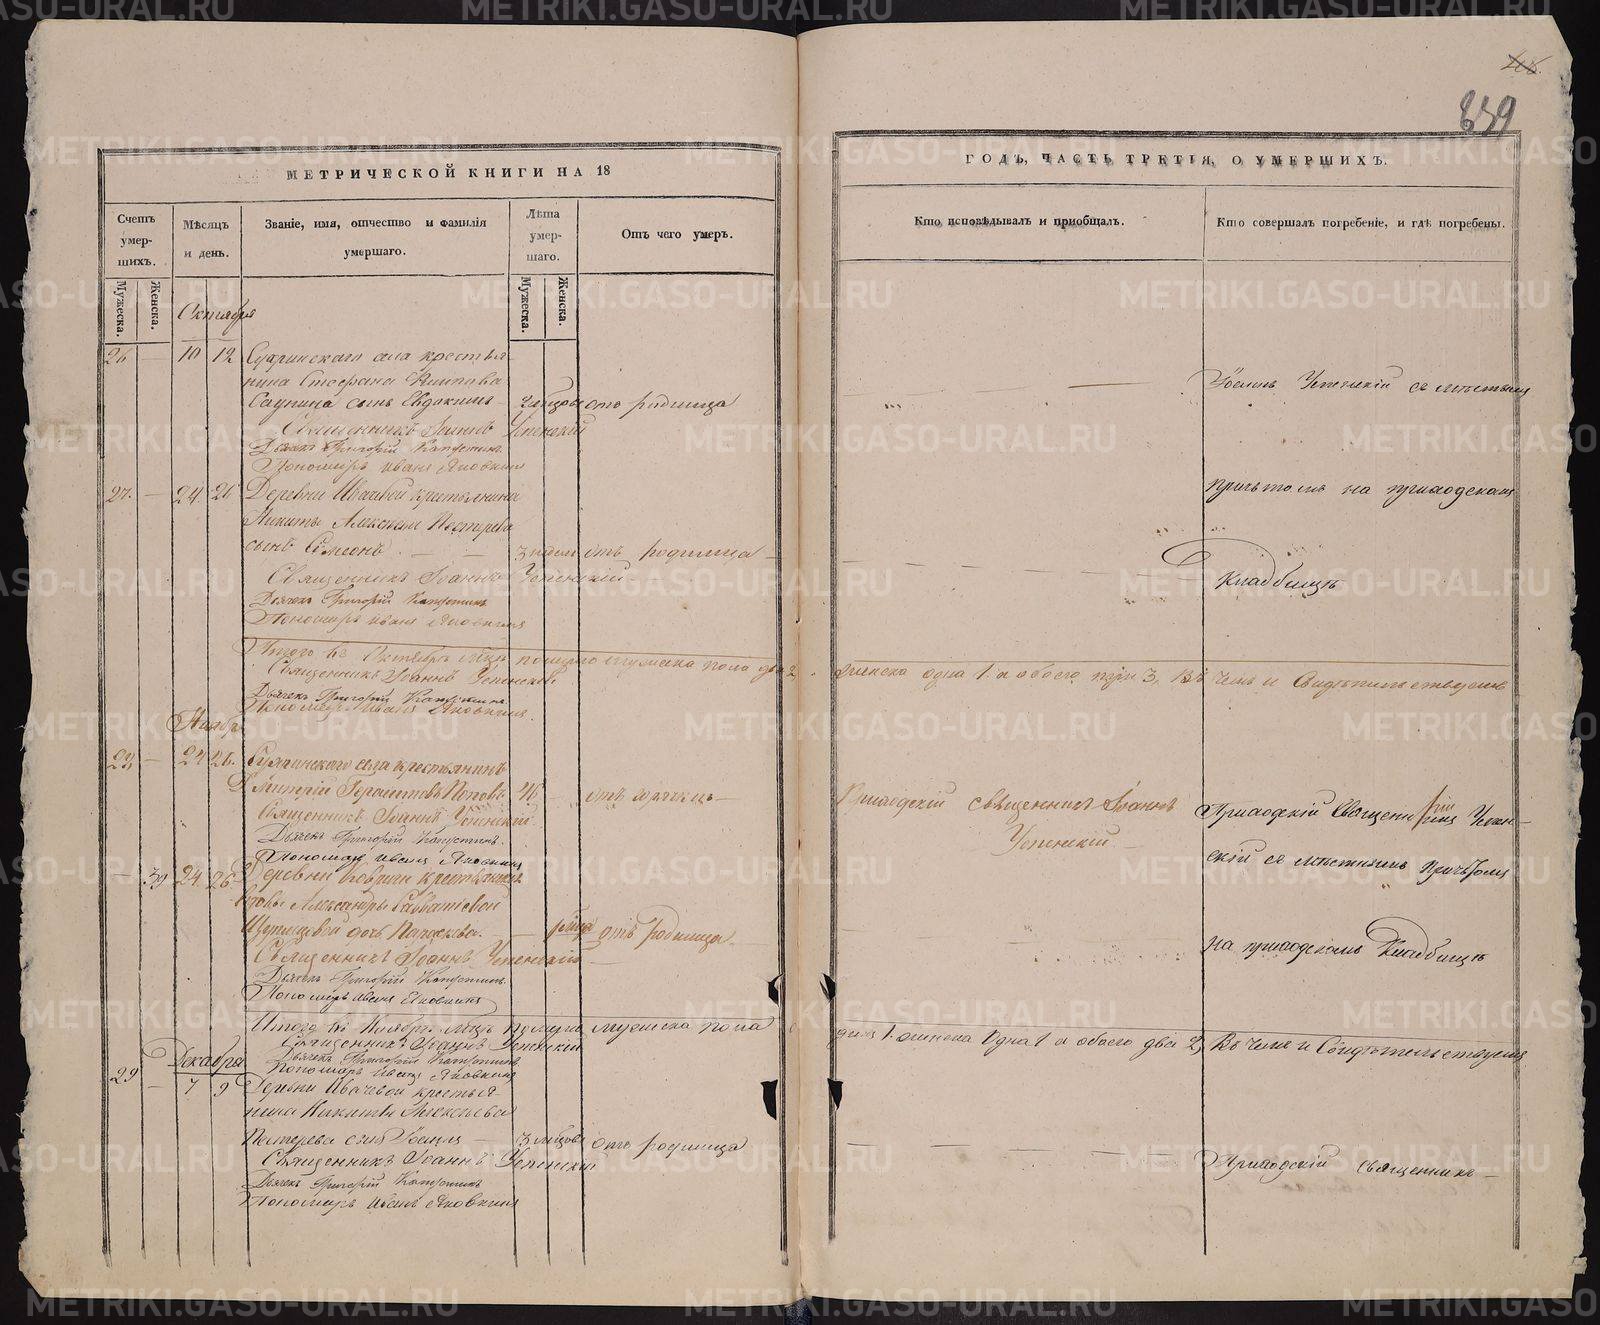 839
МЕТРИЧЕСКОЙ КНИГИ НА 18
ГОДЪ, ЧАСТЬ ТРЕТІЯ, О УМЕРШИХЪ.
Счетъ умершихъ.
Мѣсяцъ и день.
Званіе, имя, отчество и фамилія умершаго.
Лѣта умершаго.
Отъ чего умеръ.
Кто исповѣдывалъ и пріобщалъ.
Кто совершалъ погребеніе, и гдѣ погребены.
Мужеска.
Женска.
Мужеска.
Женска.
Октября
26 — 10 12
села крестья-
нина Стефана
сынъ Евдокимъ
отъ родимца
Священникъ Іоаннъ Успенскій
Дьячекъ Григорій Капустинъ
Пономарь Иванъ Яковкинъ
Успенскій съ мѣстнымъ
27. — 24 26 Деревни крестьянина
Никиты Алексѣева Пестерева
сынъ Симеонъ — — 3 недѣл отъ родимца —
Священникъ Іоаннъ Успенскій
Дьячекъ Григорій Капустинъ
Пономарь Иванъ Яковкинъ
причтомъ на приходскомъ
Кладбищѣ
Итого въ Октябрѣ мѣцѣ померло мужеска пола два 2, женска одна 1. а обоего три 3, Въ чемъ и Свидѣтельствуемъ
Священникъ Іоаннъ Успенскій
Дьячекъ Григорій Капустинъ
Пономарь Иванъ Яковкинъ.
Ноябрь
28 — 24 26. села крестьянинъ
Дмитрій Поповъ — отъ горячки —
Священникъ Іоаннъ Успенскій
Дьячекъ Григорій Капустинъ.
Пономарь Иванъ Яковкинъ
Приходскій священникъ Іоаннъ
Успенскій —
Приходскій Священникъ Успен-
скій съ мѣстнымъ причтомъ
— 39 24. 26. Деревни крестьянской
вдовы Александры Савватіевой
дочь Параскева. — отъ Родимца —
Священникъ Іоаннъ Успенскій —
Дьячекъ Григорій Капустинъ.
Пономарь Иванъ Яковкинъ
на приходскомъ Кладбищѣ
Итого въ Ноябрѣ мѣцѣ померло мужеска пола
одинъ 1. женска Одна 1 а обоего два 2, Въ чемъ и Свидѣтельствуемъ
Священникъ Іоаннъ Успенскій
Дьячекъ Григорій Капустинъ
Пономарь Иванъ Яковкинъ
Декабря
29 — 7 9 Деревни Ивачевой крестья-
нина Никиты Алексѣева
Пестерева сынъ — отъ родимца
Священникъ Іоаннъ Успенскій
Дьячекъ Григорій Капустинъ
Пономарь Иванъ Яковкинъ
Приходскій священникъ —
METRIKI.GASO-URAL.RU